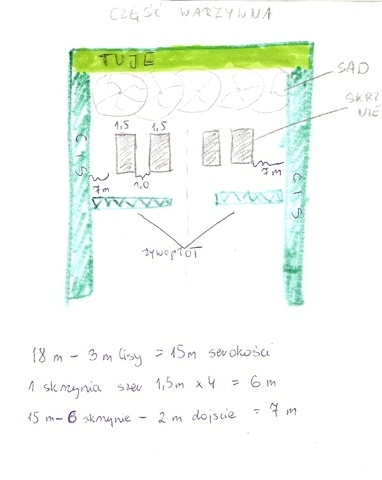 CZĘŚĆ WARZYWNA
TUJE
SAD
SKRZ
NIE
1,5 1,5
CIS
7m
1,0
7m
CIS
ŻYWOPŁOT
18 m - 3 m Cisy = 15m serokości
1 skrzynia szer 1,5m x 4 = 6 m
15 m - 6 skrzynie - 2 m dojście = 7 m